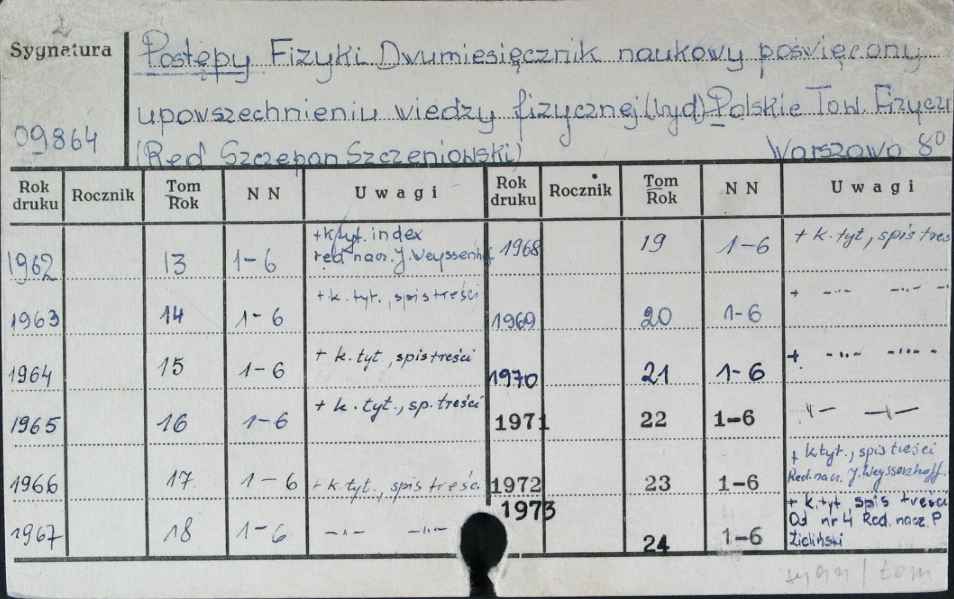 2
Sygnatura
Postępy Fizyki Dwumiesięcznik naukowy poświęcony
upowszechnieniu wiedzy fizycznej (wyd) Polskie Tow. Fizycz
09864
(Red Szczepan Szczeniowski) Warszawa 8⁰
Rok druku Rocznik Tom Rok N N Uwagi Rok druku Rocznik Tom Rok N N Uwagi
1962 13 1-6 + k.tyt. index
red. nacz. J. Weyssenhof
1968 19 1-6 + k. tyt, spis treś
1963 14 1-6 + k. tyt., spis treści
1969 20 1-6 + -"- -"-
1964 15 1-6 + k. tyt, spis treści
1970 21 1-6 + -"- -"-
1965 16 1-6 + k. tyt., sp. treści
1971 22 1-6 -"- -"-
1966 17 1-6 + k. tyt., spis treści
1972 23 1-6 + k tyt., spis treści
Red. nacz. J. Weyssenhoff.
1967 18 1-6 -"- -"-
1973 24 1-6 + k. tyt spis treści
Od nr 4 Red. nacz. P
Zieliński
/ tom